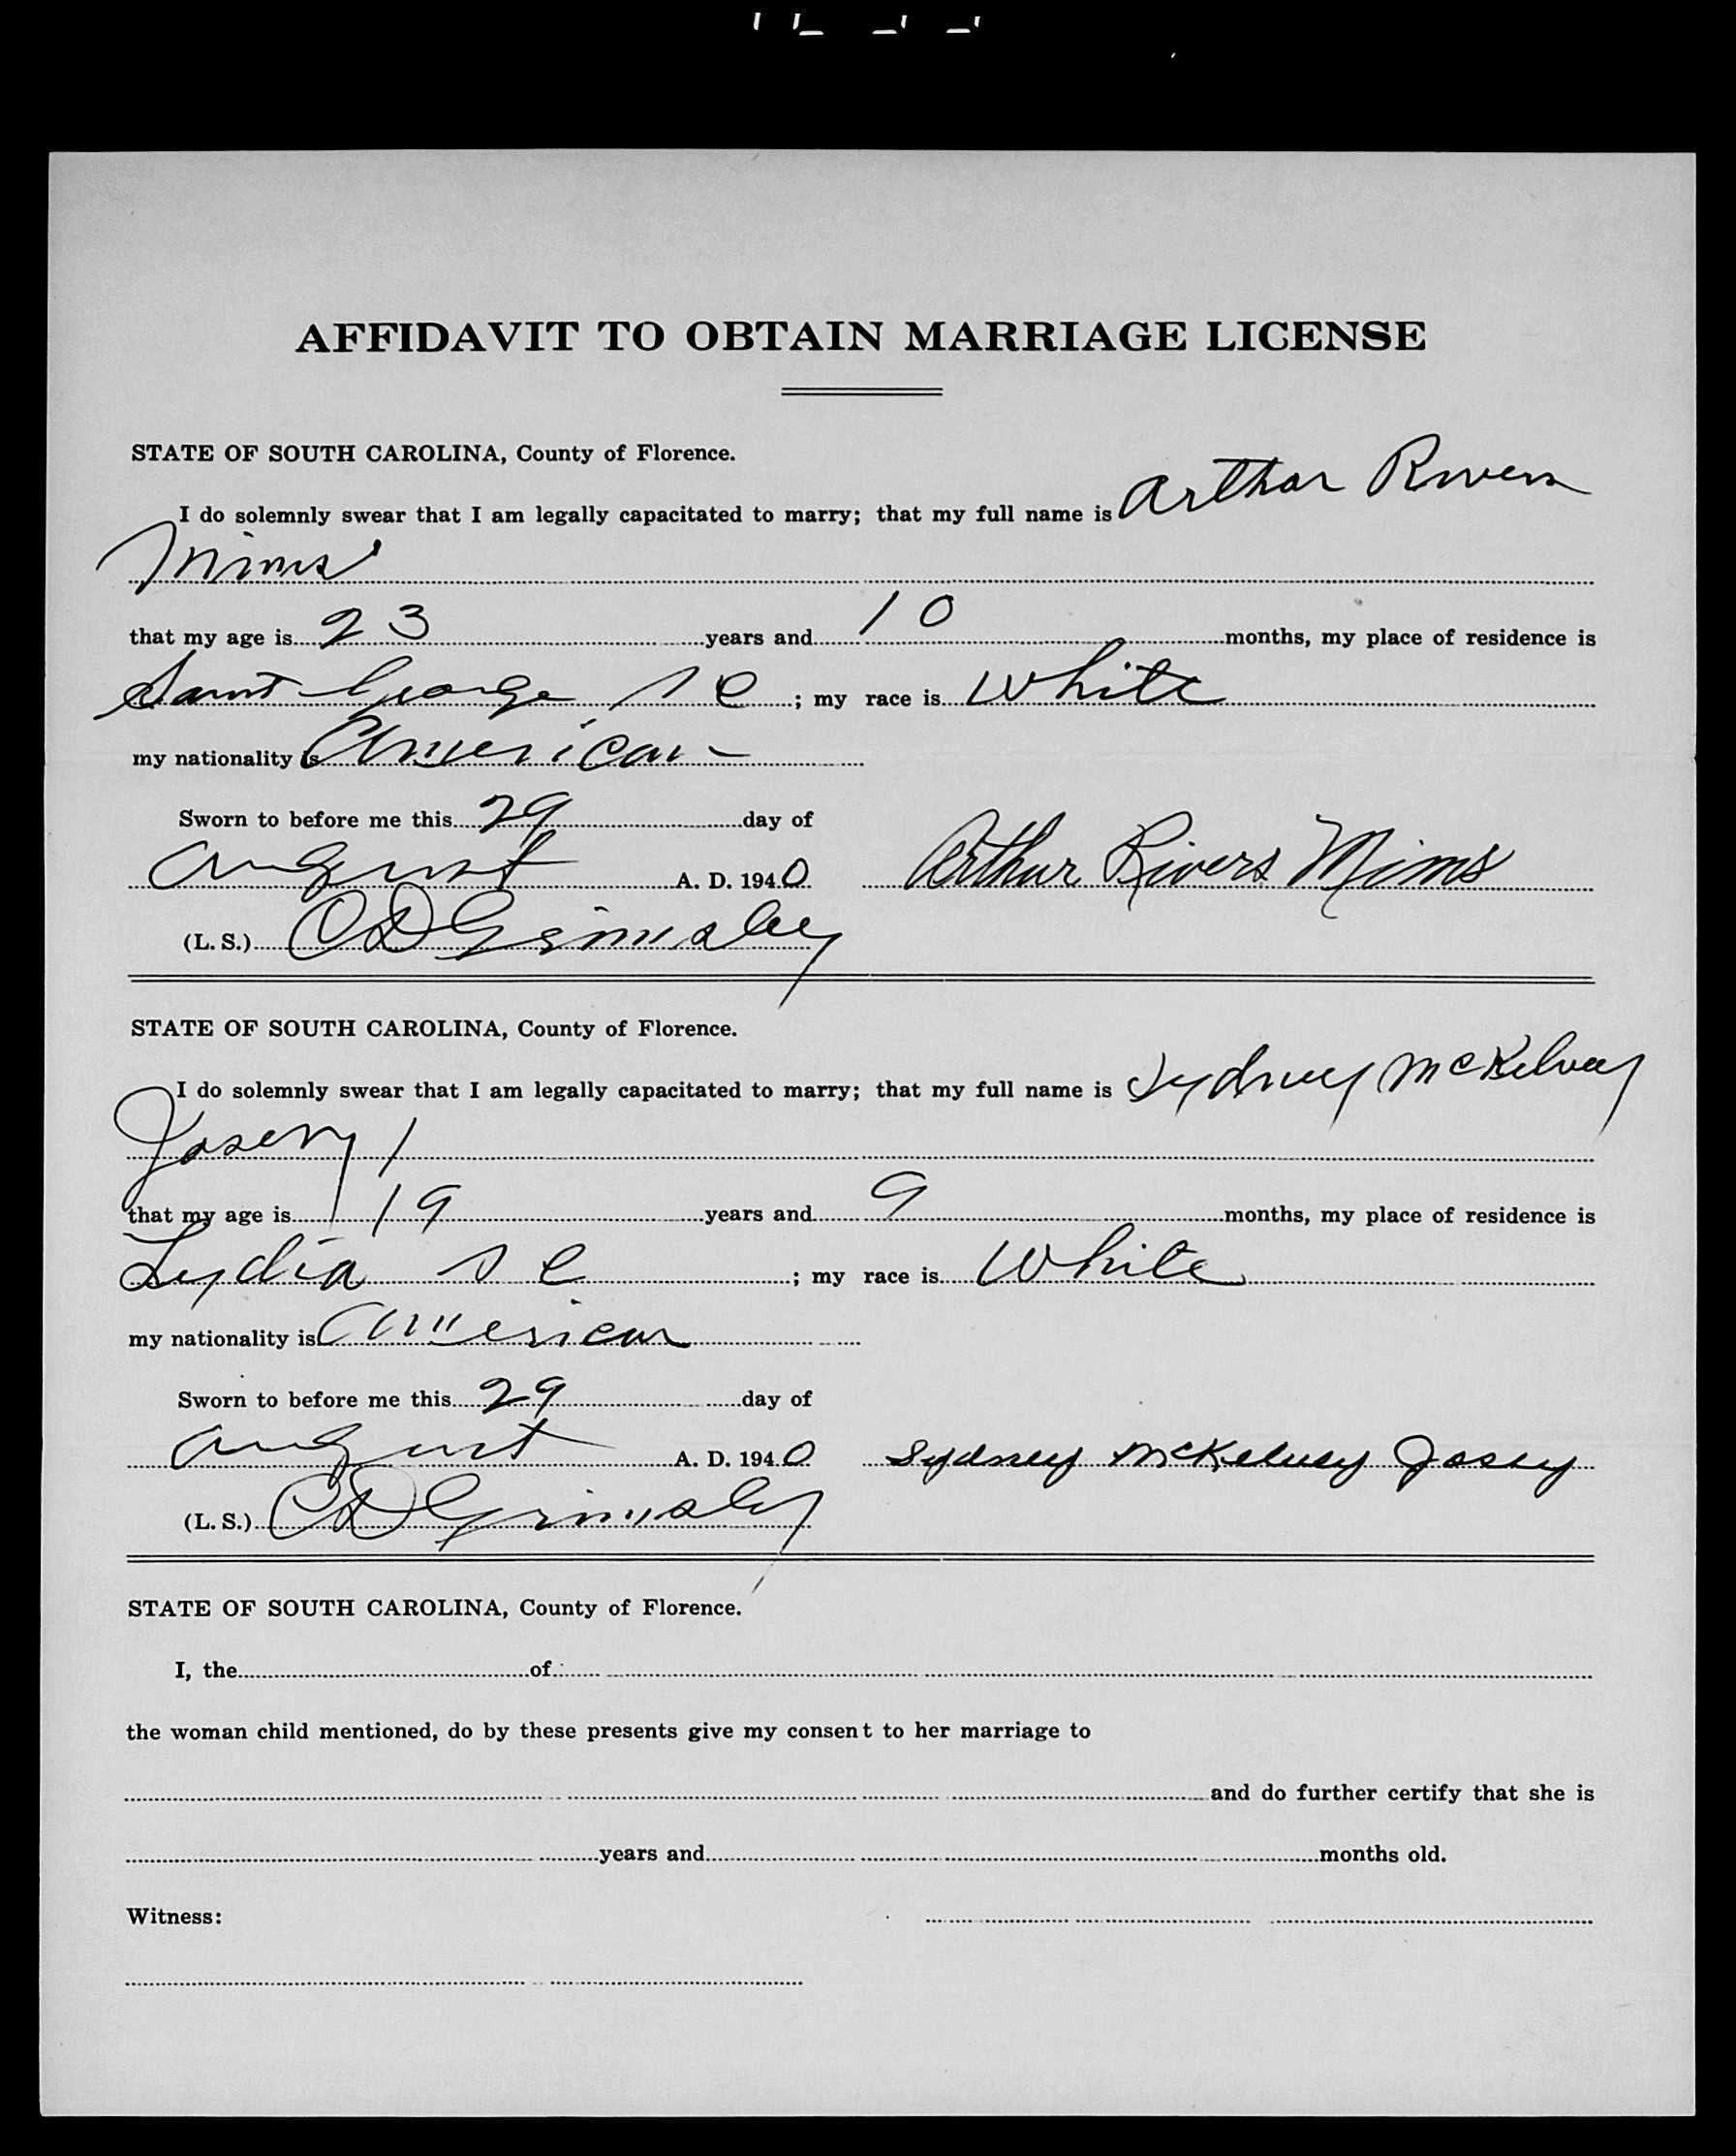 AFFIDAVIT TO OBTAIN MARRIAGE LICENSE
STATE OF SOUTH CAROLINA, County of Florence.
I do solemnly swear that I am legally capacitated to marry; that my full name is Arthur Rivers
Mims
that my age is 23 years and 10 months, my place of residence is
Saint George S C ; my race is White
my nationality is American
Sworn to before me this 29 day of
August A. D. 1940 Arthur Rivers Mims
(L. S.) C D Grimsley
STATE OF SOUTH CAROLINA, County of Florence.
I do solemnly swear that I am legally capacitated to marry; that my full name is Sydney McKelvey
Josey
that my age is 19 years and 9 months, my place of residence is
Lydia S C ; my race is White
my nationality is American
Sworn to before me this 29 day of
August A. D. 1940 Sydney McKelvey Josey
(L. S.) C D Grimsley
STATE OF SOUTH CAROLINA, County of Florence.
I, the of
the woman child mentioned, do by these presents give my consent to her marriage to
and do further certify that she is
years and months old.
Witness: